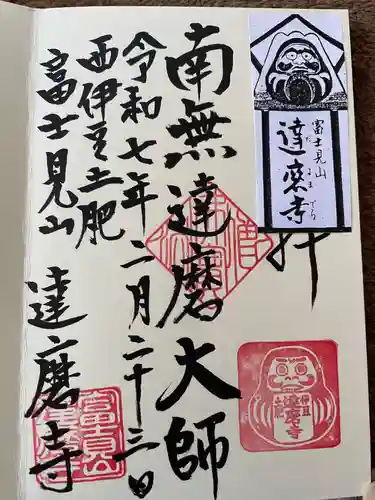 富士見山
達磨寺
だるまでら
拝
南無達磨大師
令和七年二月二十三日
西伊豆土肥
富士見山
達磨寺
伊豆
土肥
達磨寺
富士見山
達磨寺